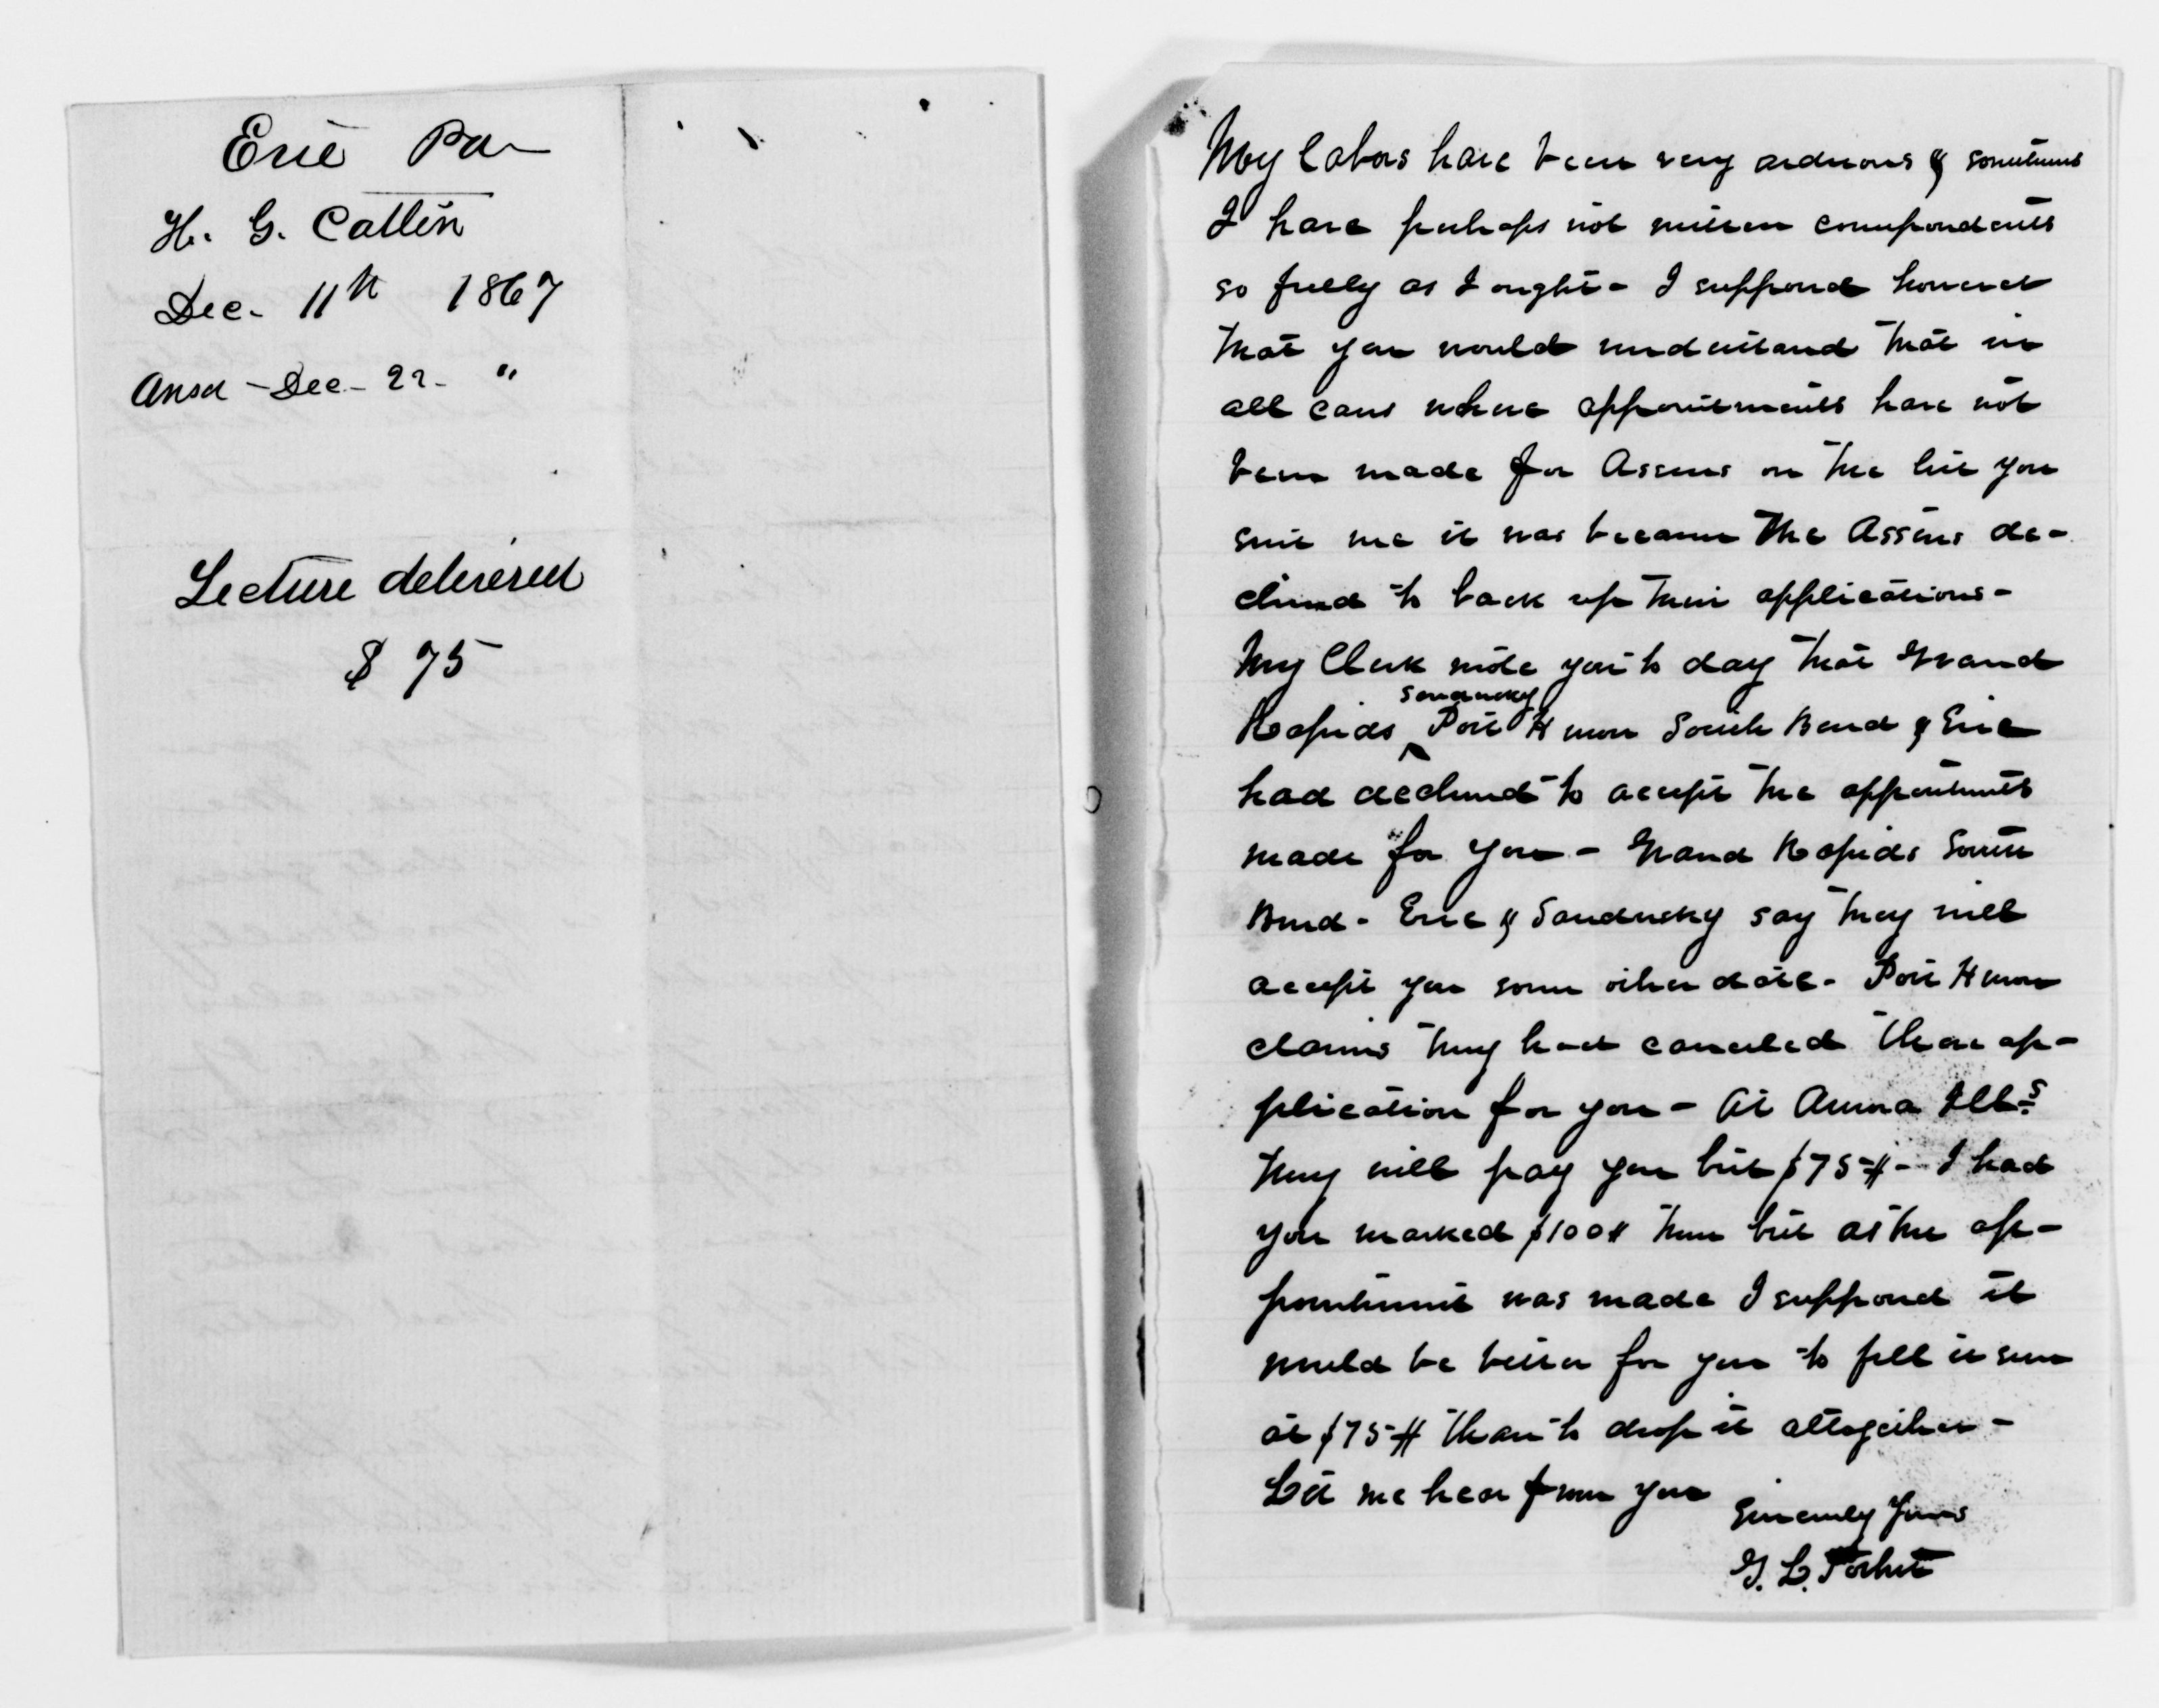 Erie Pa
H. G. Catlin
Dec. 11th 1867
Ansd - Dec - 22 - "
Lecture delivered
$ 75
My labors have been very arduous & sometimes
I have perhaps not written correspondents
so fully as I ought - I supposed however
that you would understand that in
all cases where appointments have not
been made for Assens on the list you
sent me it was because the Assens de-
clined to back up their applications -
My Clerk wrote you to day that Grand
Sandusky
Rapids ^ Port Huron South Bend & Erie
had declined to accept the appointments
made for you - Grand Rapids South
Bend - Erie & Sandusky say they will
accept you some other date - Port Huron
claims they had canceled there ap-
plication for you - At Aurora Ills
They will pay you but $75 - I had
you marked $100 there but as the ap-
pointment was made I supposed it
would be better for you to fill it even
at $75 than to drop it altogether -
Let me hear from you
Sincerely Yours
G. L. Torbert